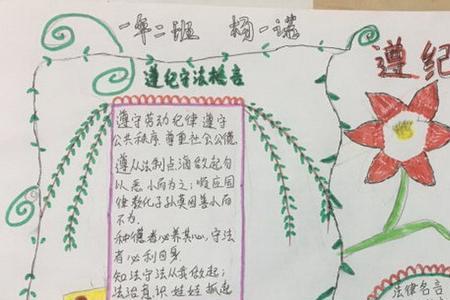 一年二班 杨一诺
遵纪守法格言
遵纪
遵守劳动纪律 遵守
公共秩序 尊重社会公德
遵从法制点滴做起勿
以恶小而为之；顺应国
律教化子孙莫因善小而
不为.
种德者必养其心，守法
者必利自身
知法守法从我做起；
法治意识 娃娃抓起
法律名言